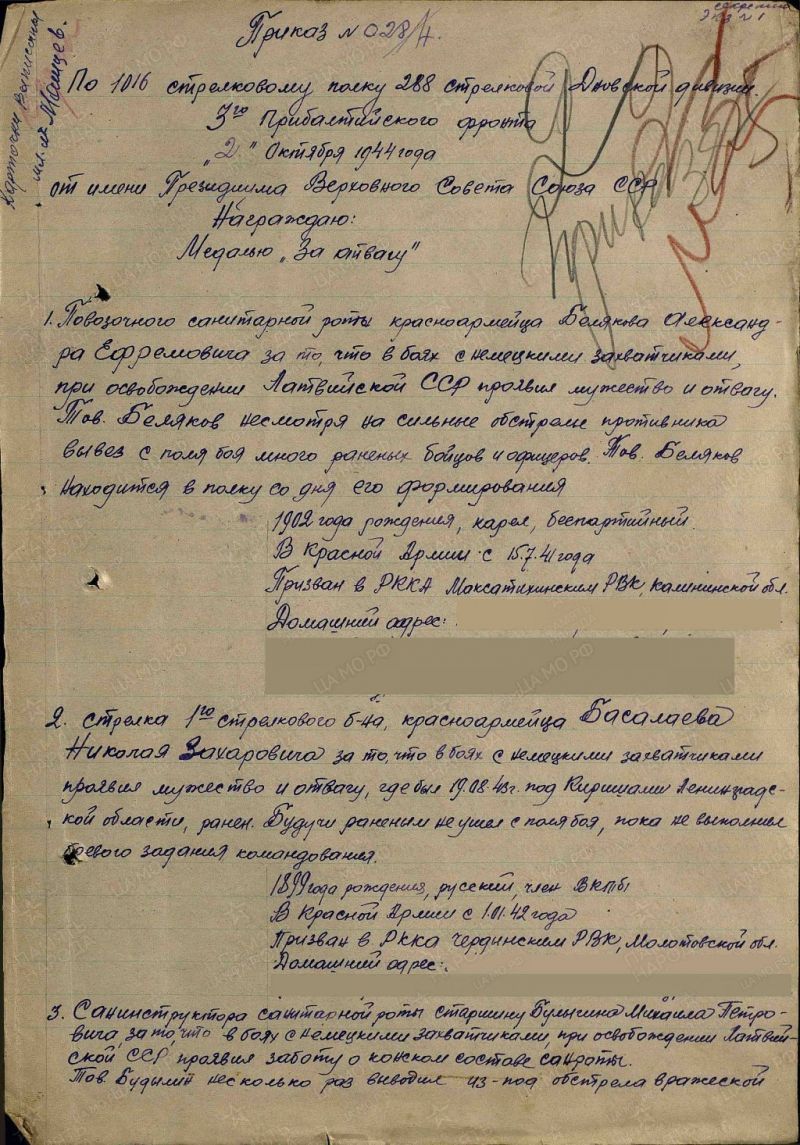 секретно
экз №1
Карточки выписаны
мл. л-т Мальцев.
Приказ №028/н.
По 1016 стрелковому полку 288 стрелковой Дновской дивизии.
3го Прибалтийского фронта
"2" Октября 1944 года
от имени Президиума Верховного Совета Союза ССР
Награждаю:
Медалью „За отвагу"
1. Повозочного санитарной роты красноармейца Белякова Александ-
ра Ефремовича за то, что в боях с немецкими захватчиками,
при освобождении Латвийской ССР проявил мужество и отвагу.
Тов. Беляков несмотря на сильные обстрелы противника
вывез с поля боя много раненых бойцов и офицеров. Тов. Беляков
находится в полку со дня его формирования
1902 года рождения, карел, беспартийный.
В Красной Армии с 15.7.41 года
Призван в РККА Максатихинским РВК, Калининской обл.
Домашний адрес:
2. Стрелка 1го стрелкового б-на, красноармейца Басалаева
Николая Захаровича за то, что в боях с немецкими захватчиками
проявил мужество и отвагу, где был 19.08.43г. под Киришами Ленинградс-
кой области, ранен. Будучи раненым не ушел с поля боя, пока не выполнил
боевого задания командования.
1899 года рождения, русский, член ВКП(б)
В Красной Армии с 1.01.42 года
Призван в РККА Чердинским РВК, Молотовской обл.
Домашний адрес:
3. Санинструктора санитарной роты старшину Булыгина Михаила Петро-
вича, за то, что в боях с немецкими захватчиками, при освобождении Латвий-
ской ССР, проявил заботу о конском составе санроты.
Тов. Булыгин несколько раз выводил из-под обстрела вражеской